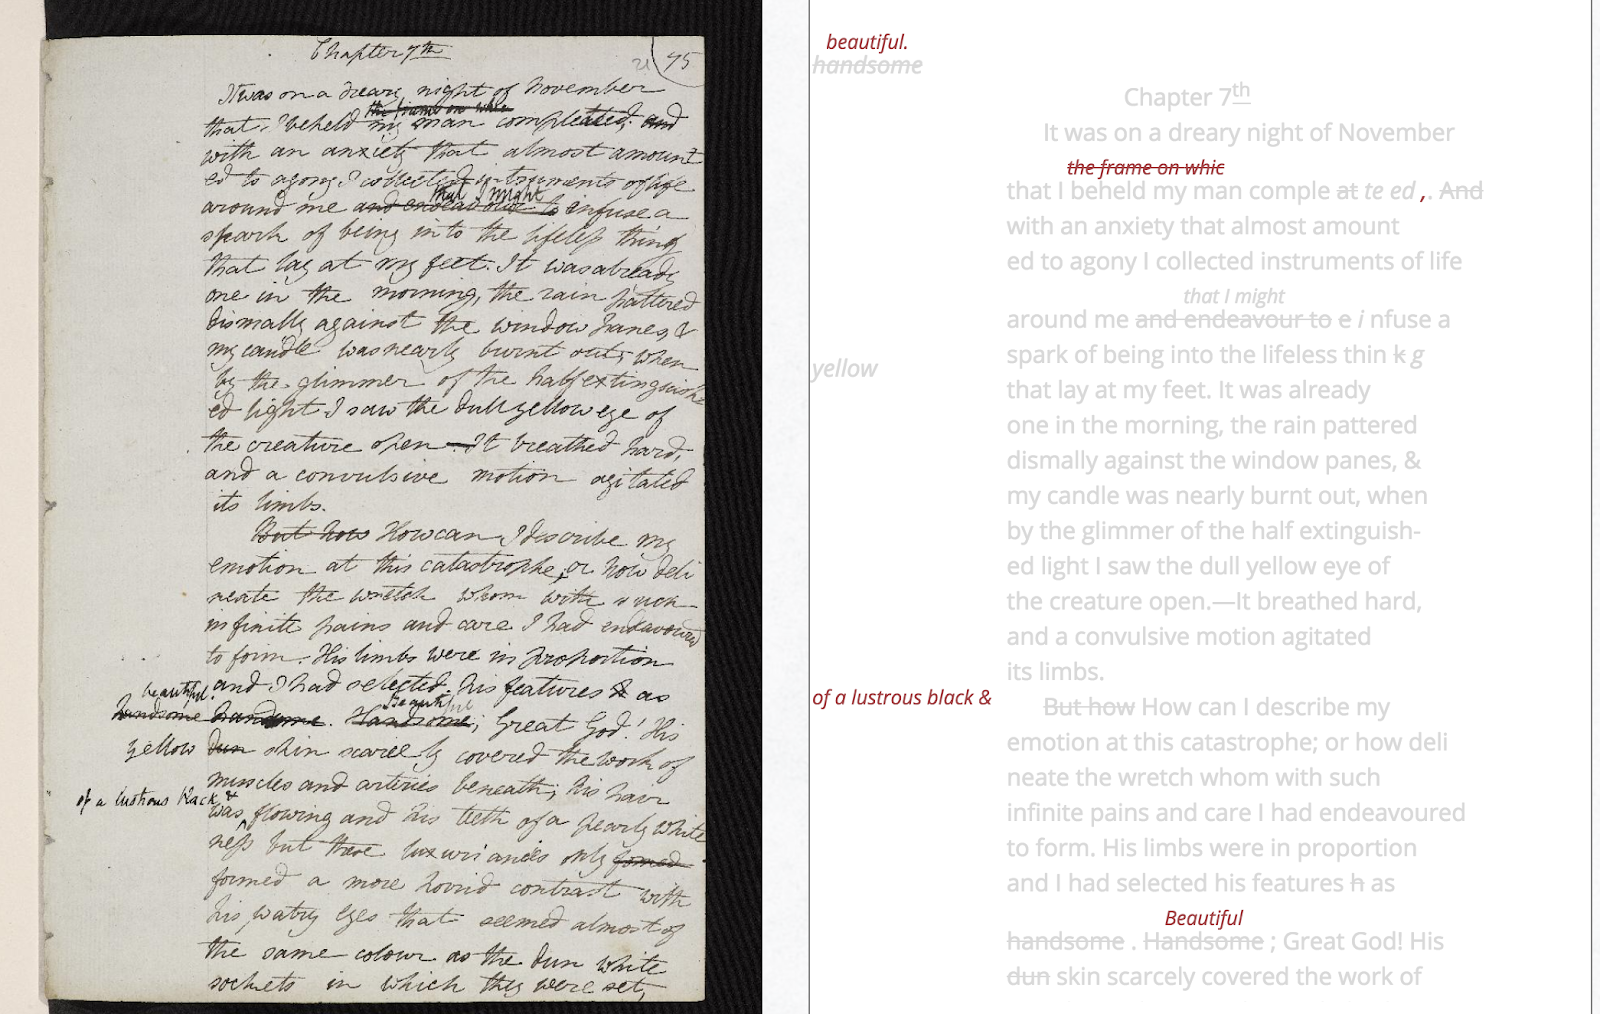 Chapter 7th
21
75
It was on a dreary night of November
the frame on whic
that I beheld my man compleated, and
with an anxiety that almost amount
ed to agony I collected instruments of life
that I might
around me and endeavour to infuse a
spark of being into the lifeless thing
that lay at my feet. It was already
one in the morning, the rain pattered
dismally against the window panes, &
my candle was nearly burnt out, when
by the glimmer of the half extinguish
ed light I saw the dull yellow eye of
the creature open—It breathed hard,
and a convulsive motion agitated
its limbs.
But how How can I describe my
emotion at this catastrophe; or how deli
neate the wretch whom with such
infinite pains and care I had endeavoured
to form. His limbs were in proportion
beautiful. and I had selected his features h as
Beautiful
handsome handsome. Handsome; Great God! His
yellow dun skin scarcely covered the work of
muscles and arteries beneath; his hair
of a lustrous black &
was flowing and his teeth of a pearly white
ness but these luxuriancies only formed
formed a more horrid contrast with
his watry eyes that seemed almost of
the same colour as the dun white
sockets in which they were set,
beautiful.
handsome
Chapter 7th
It was on a dreary night of November
the frame on whic
that I beheld my man comple at te ed ,. And
with an anxiety that almost amount
ed to agony I collected instruments of life
that I might
around me and endeavour to e i nfuse a
spark of being into the lifeless thin k g
yellow
that lay at my feet. It was already
one in the morning, the rain pattered
dismally against the window panes, &
my candle was nearly burnt out, when
by the glimmer of the half extinguish-
ed light I saw the dull yellow eye of
the creature open.—It breathed hard,
and a convulsive motion agitated
its limbs.
of a lustrous black &
But how How can I describe my
emotion at this catastrophe; or how deli
neate the wretch whom with such
infinite pains and care I had endeavoured
to form. His limbs were in proportion
and I had selected his features h as
Beautiful
handsome . Handsome ; Great God! His
dun skin scarcely covered the work of